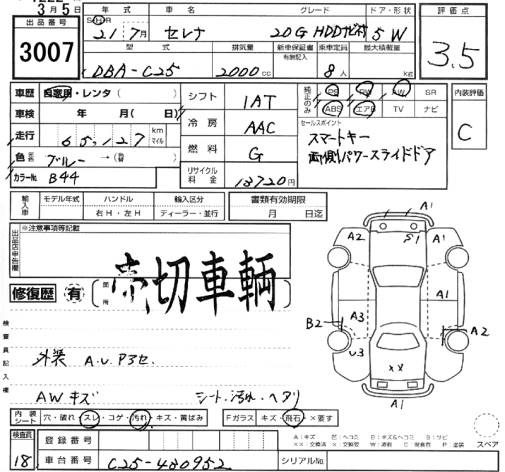 3月5日
出品番号
3007
年式 車名 グレード ドア・形状
21年7月 セレナ 20G HDDナビHV 5W
評価点
3.5
型式 排気量 新車保証書 有無記入 乗車定員 最大積載量
DBA-C25 2000cc 8人
車歴 自家用・レンタ( )
シフト 1AT
純正のみ PS PW AW SR
ABS エアB TV ナビ
内装評価
C
車検 年 月( 日)
冷房 AAC
セールスポイント
スマートキー
両側パワースライドドア
走行 65,127 km マイル
燃料 G
色 ブルー→(替 )
リサイクル料金 13720円
カラーNo. B44
輸入車 モデル年式 ハンドル 輸入区分
右H・左H ディーラー・並行
書類有効期限
月 日迄
出品店申告欄
※注意事項等記載
売切車輌
修復歴 有 箇所
検査員記入欄
外装 A.U.P3セ.
AWキズ シート.汚れ.ヘタリ
A1
A2 S1 A1
A1
A3
B2 A2
U3
××
A1
内装シート 穴・破れ・スレ・コゲ・汚れ・キズ・黄ばみ
Fガラス キズ・飛石・×要す
A:キズ
スペア
検査員
18
登録番号
車台番号 C25-480952
シリアルNo.